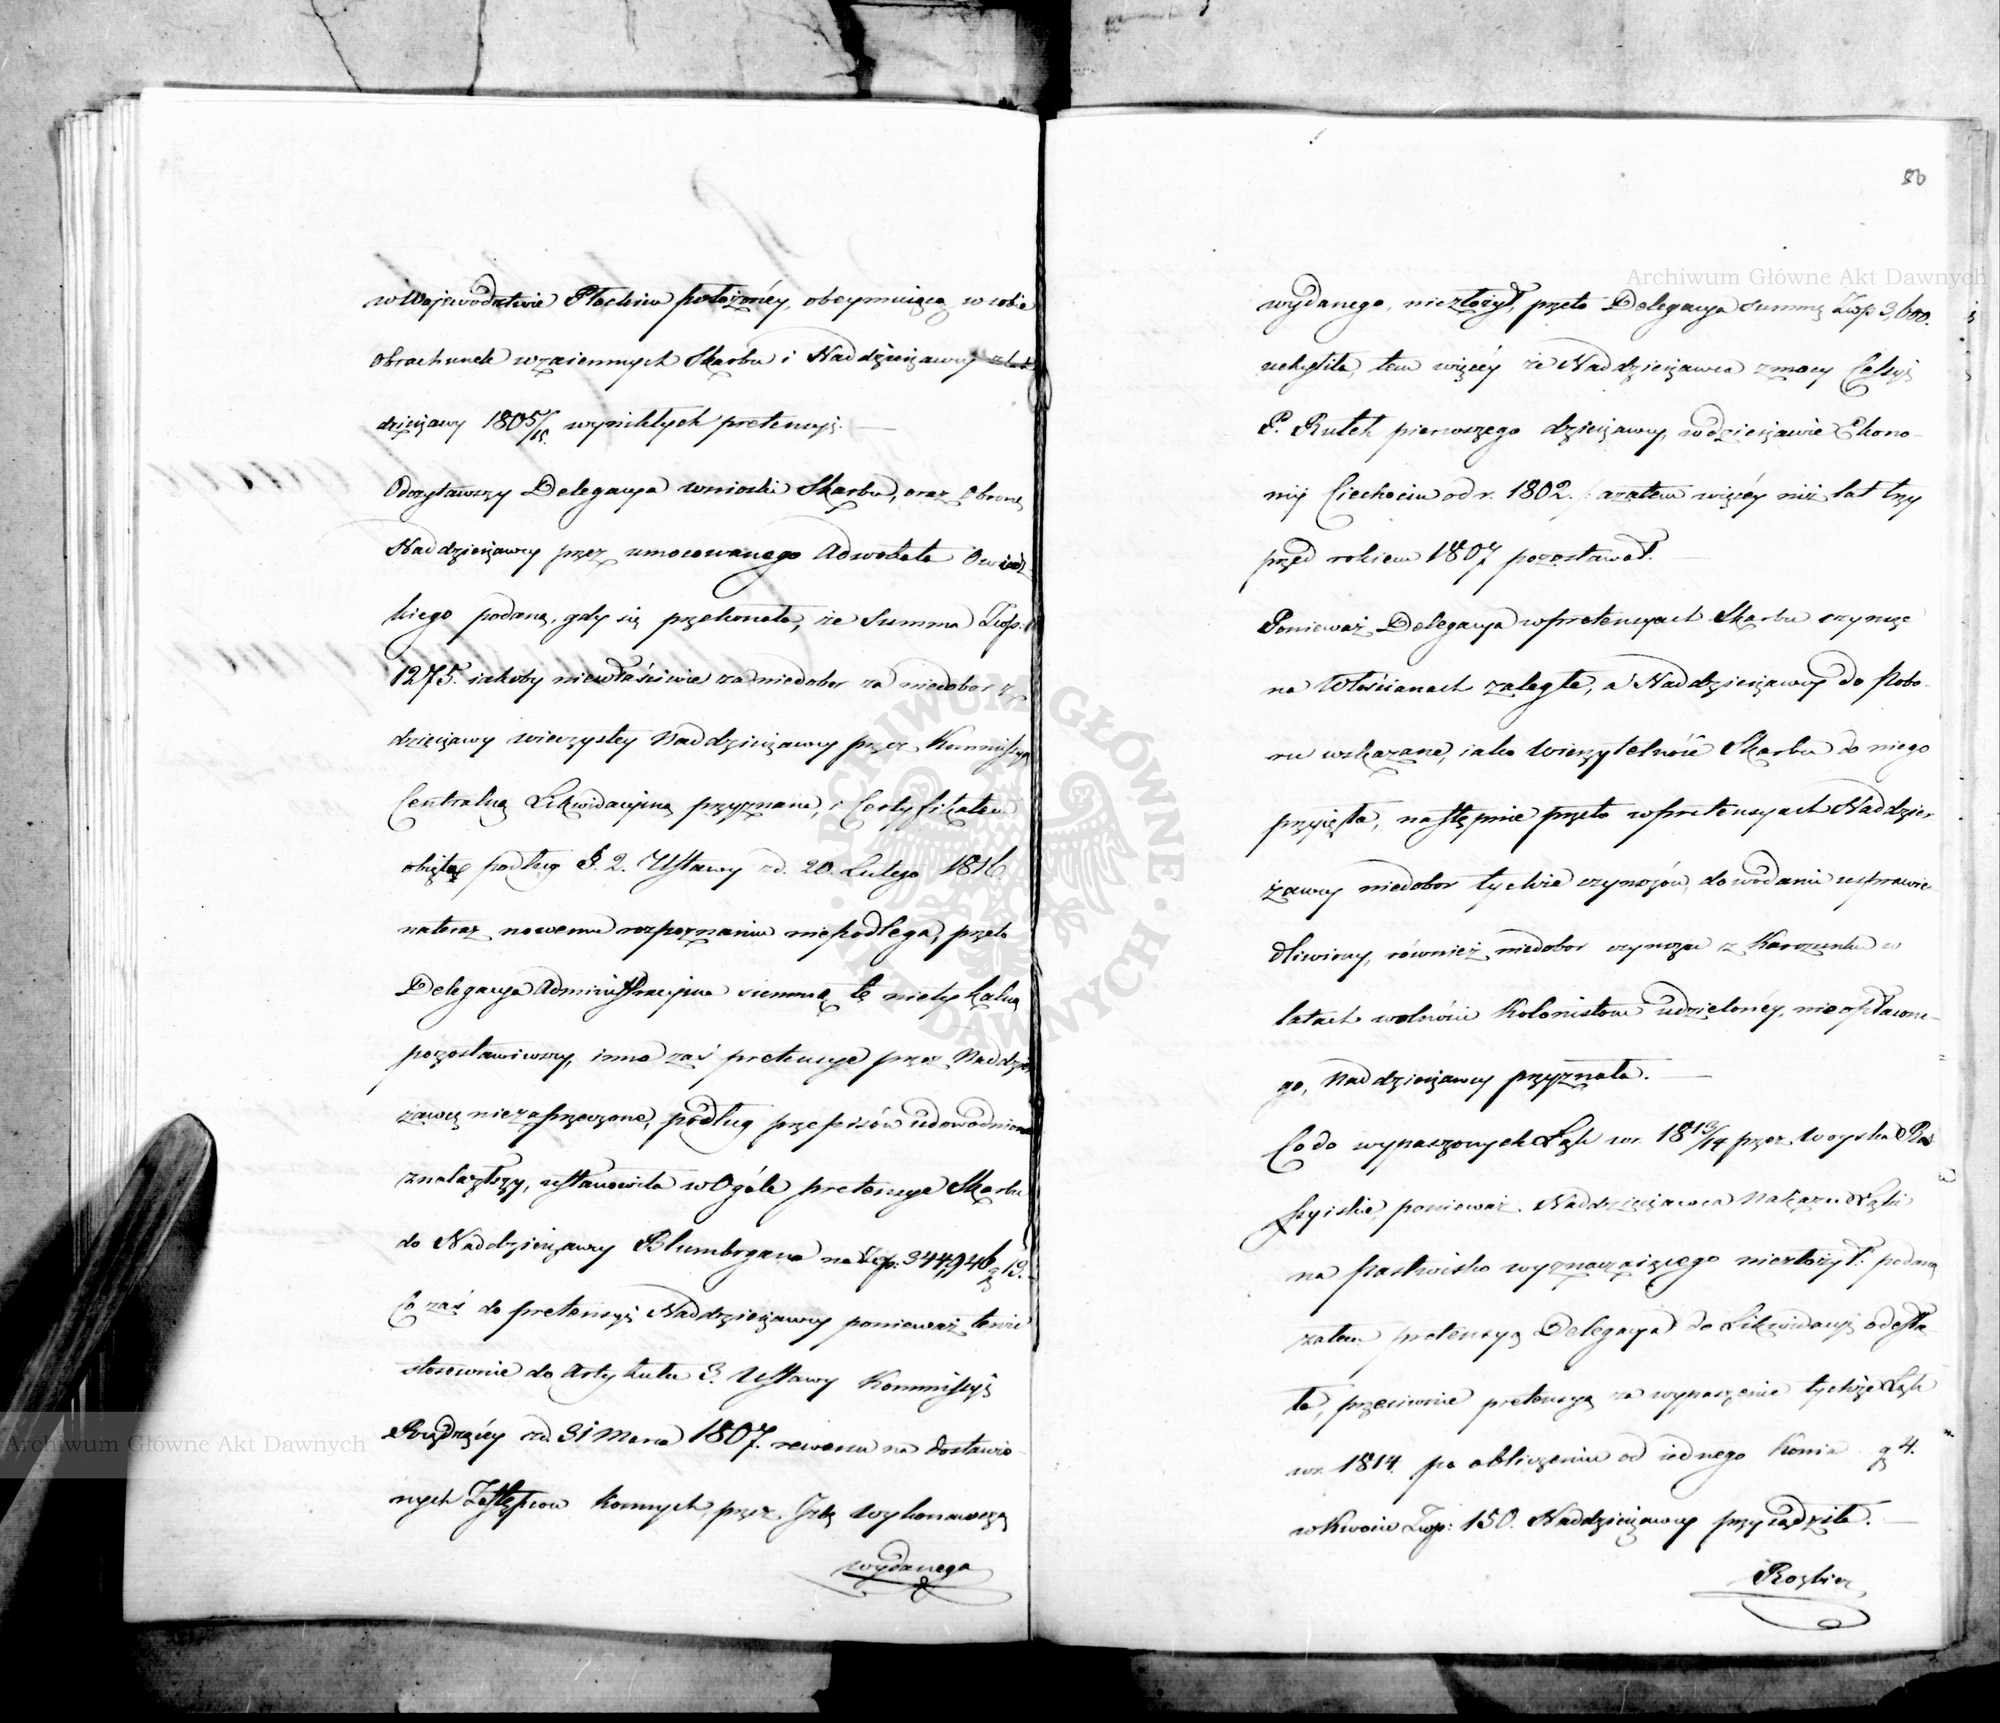 w Województwie Płockim położonéy, obeymuiącą w sobie
obrachunek wzaiemnych Skarbu i Naddzierżawcy z lat
dzierżawy 1805/15. wynikłych pretensyi. —
Odczytawszy Delegacya wnioski Skarbu, oraz Obronę
Naddzierżawcy przez umocowanego Adwokata
kiego podaną, gdy się przekonała, że Summa Złp.
1275. iakoby niewłaściwie za niedobor za niedobor z
dzierżawy wieczystey Naddzierżawcy przez Kommissyą
Centralną Likwidacyiną przyznana, i Certyfikatem
obięta podług §. 2. Ustawy zd. 20. Lutego 1816.
nateraz nowemu rozpoznaniu niepodlega, przeto
Delegacya Administracyina summę tę nietykalną
pozostawiwszy, inne zaś pretensye przez Naddzier
żawcę niezaprzeczone, podług przepisów udowodnione
znalazłszy, ustanowiła w Ogóle pretensye Skarbu
do Naddzierżawcy Blumbrgana na Złp. 344,946 g 13.
Co zaś do pretensyi Naddzierżawcy ponieważ tenże
stosownie do Artykułu 3. Ustawy Kommissyi
Rządzącéy zd. 31 Marca 1807. rewersu na dostawio-
nych Zastępców konnych przez Izbę Wykonawczą
wydanego
86
Archiwum Główne Akt Dawnych
wydanego, niezłożył, przeto Delegacya summę Złp 3,600.
uchyliła, tem więcéy że Naddzierżawca z mocy Cessyi
P. Rutch pierwszego dzierżawcy, w dzierżawie Ekono-
mij Ciechocin od r. 1802. a zatem więcéy niż lat trzy
przed rokiem 1807 pozostawał. —
Ponieważ Delegacya w pretensyach Skarbu czynsze
na Włościanach zaległe, a Naddzierżawcy do Pobo-
ru wskazane, iako wierzytelność Skarbu do niego
przyięła, następnie przeto w pretensyach Naddzier
żawcy niedobor tychże czynszów, dowodami usprawie-
dliwiony, również niedobor czynszu z Karczunku w
latach wolności Kolonistom udzielonéy, nieopłacone-
go, Naddzierżawcy przyznała. —
Co do wypaszonych Łąk w r. 1813/14 przez Woyska Ros
syiskie, ponieważ Naddzierżawca Nakazu Łąki
na pastwisko wyznaczaiącego niezłożył. podaną
zatem pretensyą Delegacya do Likwidacyi odesła
ła, przeciwnie pretensyą za wypaszenie tychże Łąk
w r. 1814. po obliczeniu od iednego Konia g 4.
w kwocie Złp: 150. Naddzierżawcy przysądziła. —
Archiwum Główne Akt Dawnych
ARCHIWUM GŁÓWNE · AKT DAWNYCH ·